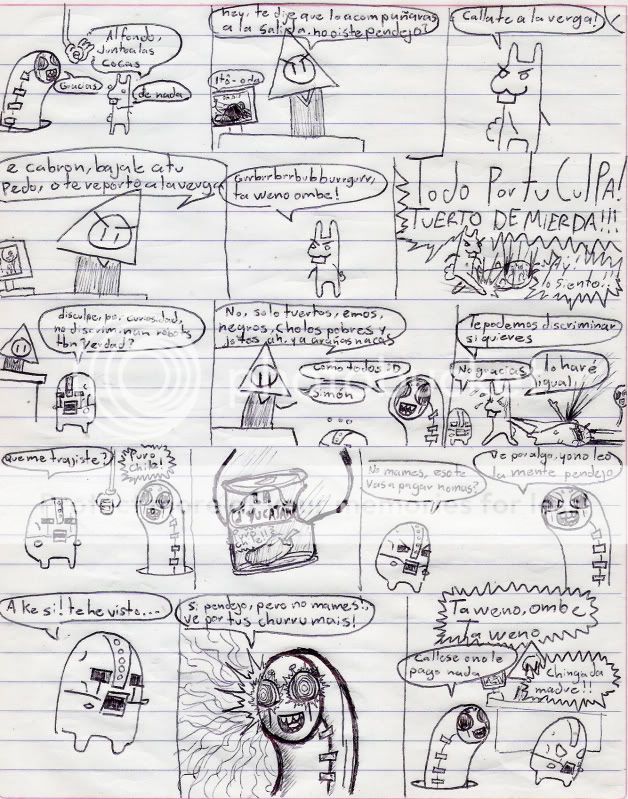 Al fondo,
junto a las
cocas
Gracias
de nada
hey, te dije que lo acompañaras
a la salida, no oiste pendejo?
Itō-oda
Callate a la verga!
e cabron, bajale a tu
Pedo, o te reporto a la verga
Grrbrrbrrbubburrgurr,
ta weno ombe!
Todo Por tu CulPA!
TUERTO DE MIERDA!!!
Ay!
lo siento...
disculpe, por curiosidad,
no discriminan robots
tbn verdad?
No, solo tuertos, emos,
negros, cholos pobres y
jotos ah, y a arañas nacas
como todos :D
Simón
Te podemos discriminar
si quieres
No gracias
lo haré
igual
Que me trajiste?
Puro
Chile!
YUCATAN
No mames, eso te
vas a pagar nomas?
Ve por algo, yo no leo
la mente pendejo
A ke si! te he visto...
si pendejo, pero no mames!,
ve por tus churrumais!
Ta weno, ombe
Ta weno
Callese o no le
pago nada
Chingada
madre!!